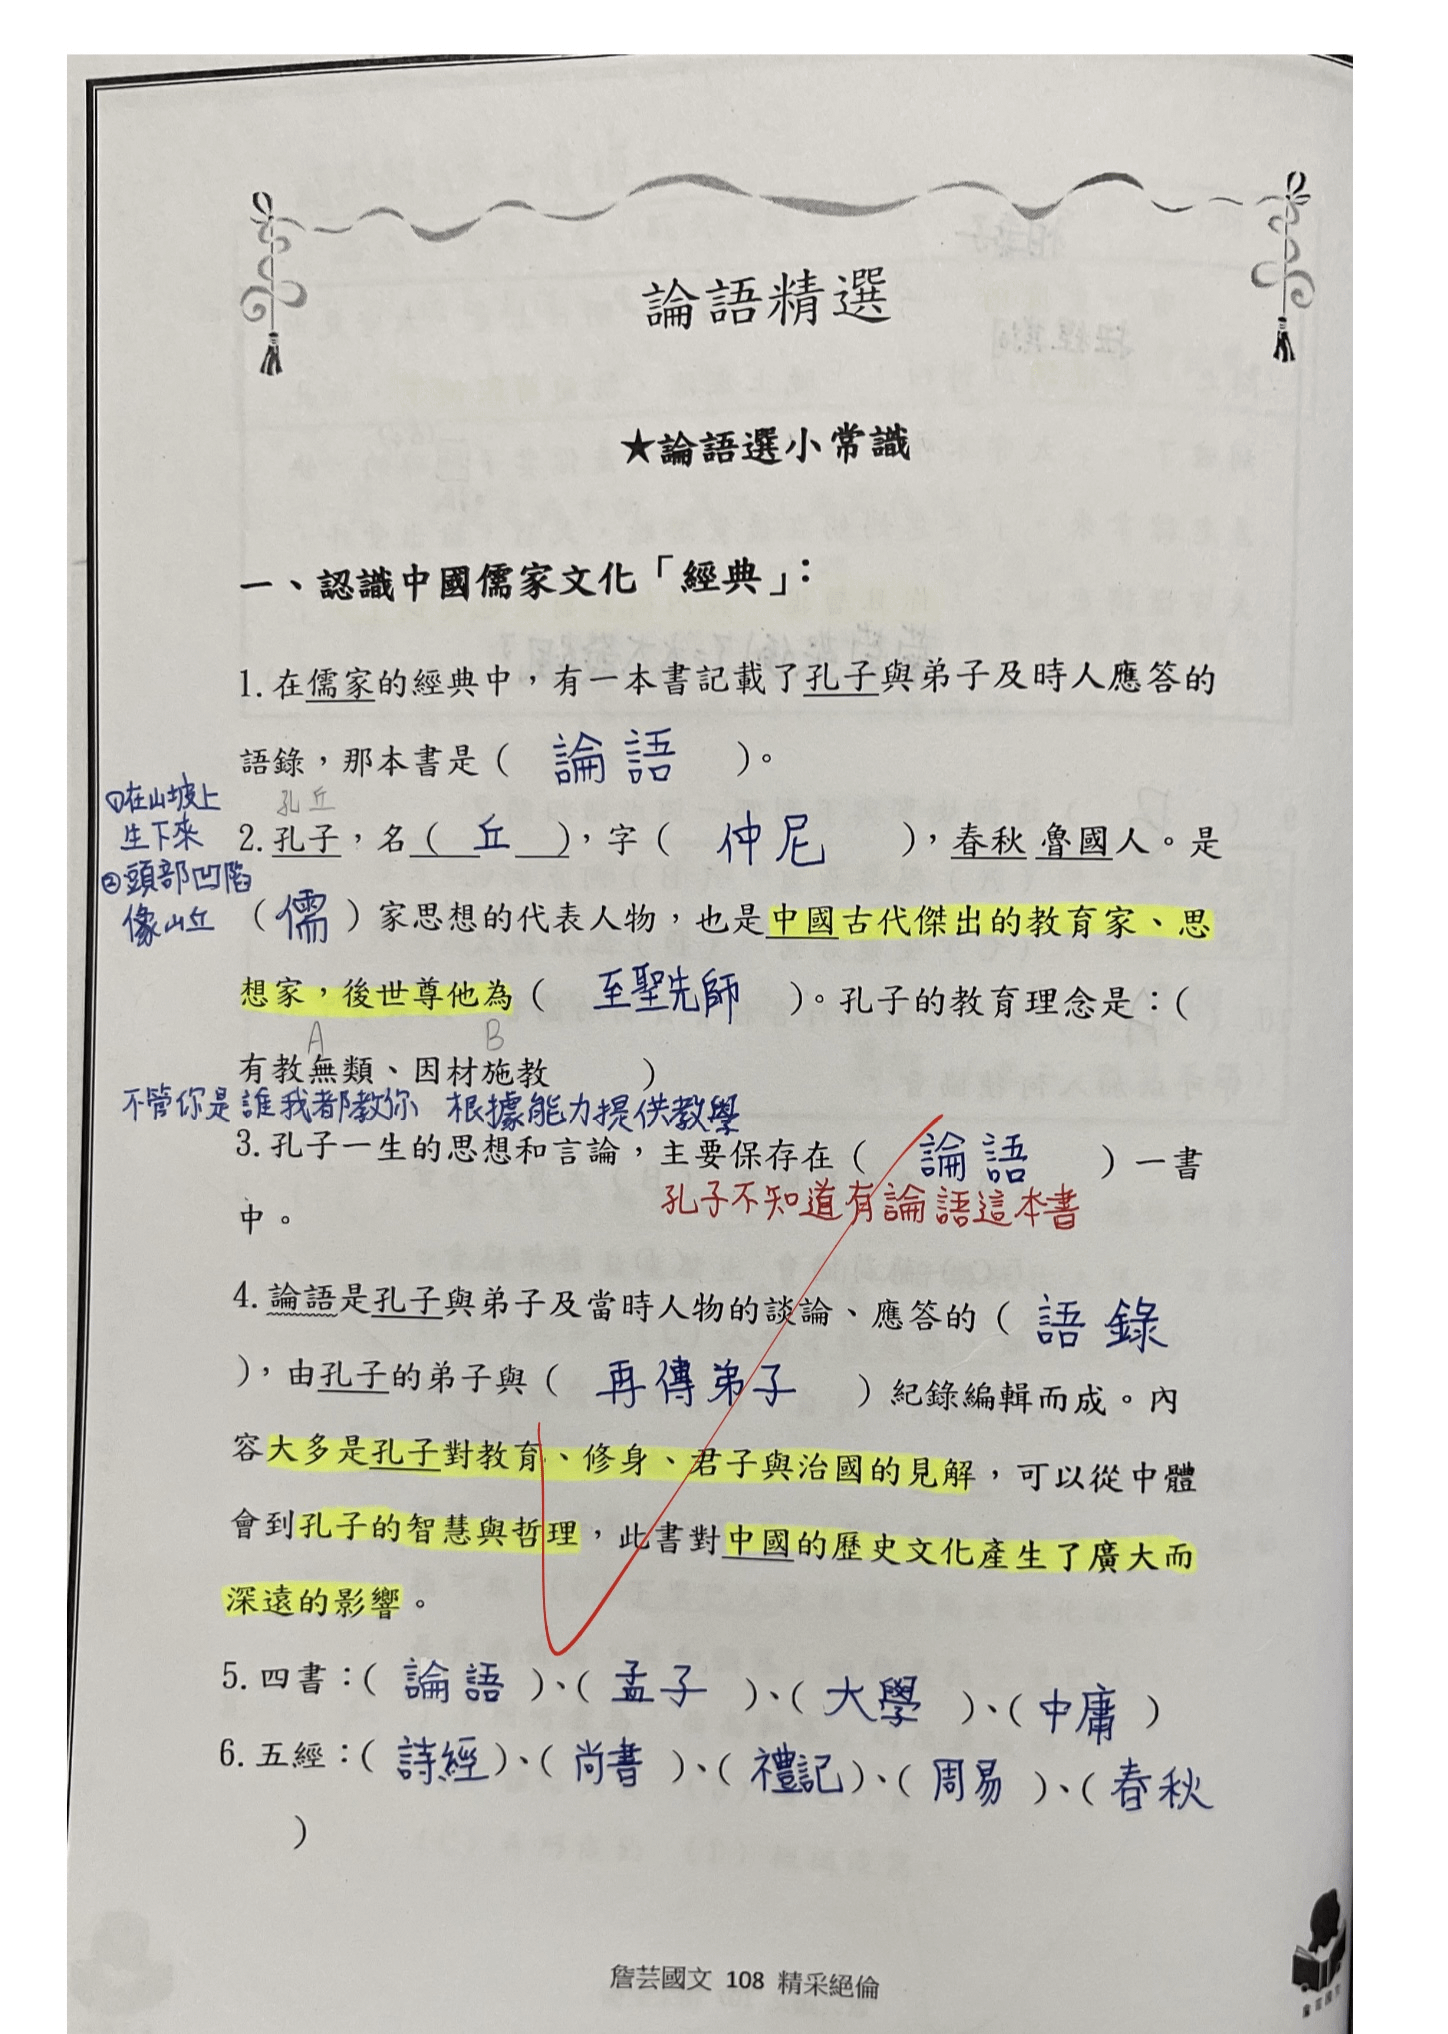 論語精選
★論語選小常識
一、認識中國儒家文化「經典」：
1.在儒家的經典中，有一本書記載了孔子與弟子及時人應答的
語錄，那本書是（ 論語 ）。
①在山坡上
生下來
②頭部凹陷
像山丘
孔丘
2.孔子，名（ 丘 ），字（ 仲尼 ），春秋 魯國人。是
（儒）家思想的代表人物，也是中國古代傑出的教育家、思
想家，後世尊他為（ 至聖先師 ）。孔子的教育理念是：（
A B
有教無類、因材施教 ）
不管你是誰我都教你 根據能力提供教學
3.孔子一生的思想和言論，主要保存在（ 論語 ）一書
中。
孔子不知道有論語這本書
4.論語是孔子與弟子及當時人物的談論、應答的（ 語錄
），由孔子的弟子與（ 再傳弟子 ）紀錄編輯而成。內
容大多是孔子對教育、修身、君子與治國的見解，可以從中體
會到孔子的智慧與哲理，此書對中國的歷史文化產生了廣大而
深遠的影響。
5.四書：（ 論語 ）、（ 孟子 ）、（ 大學 ）、（中庸 ）
6.五經：（ 詩經）、（ 尚書 ）、（ 禮記）、（ 周易 ）、（ 春秋
）
詹芸國文 108 精采絕倫